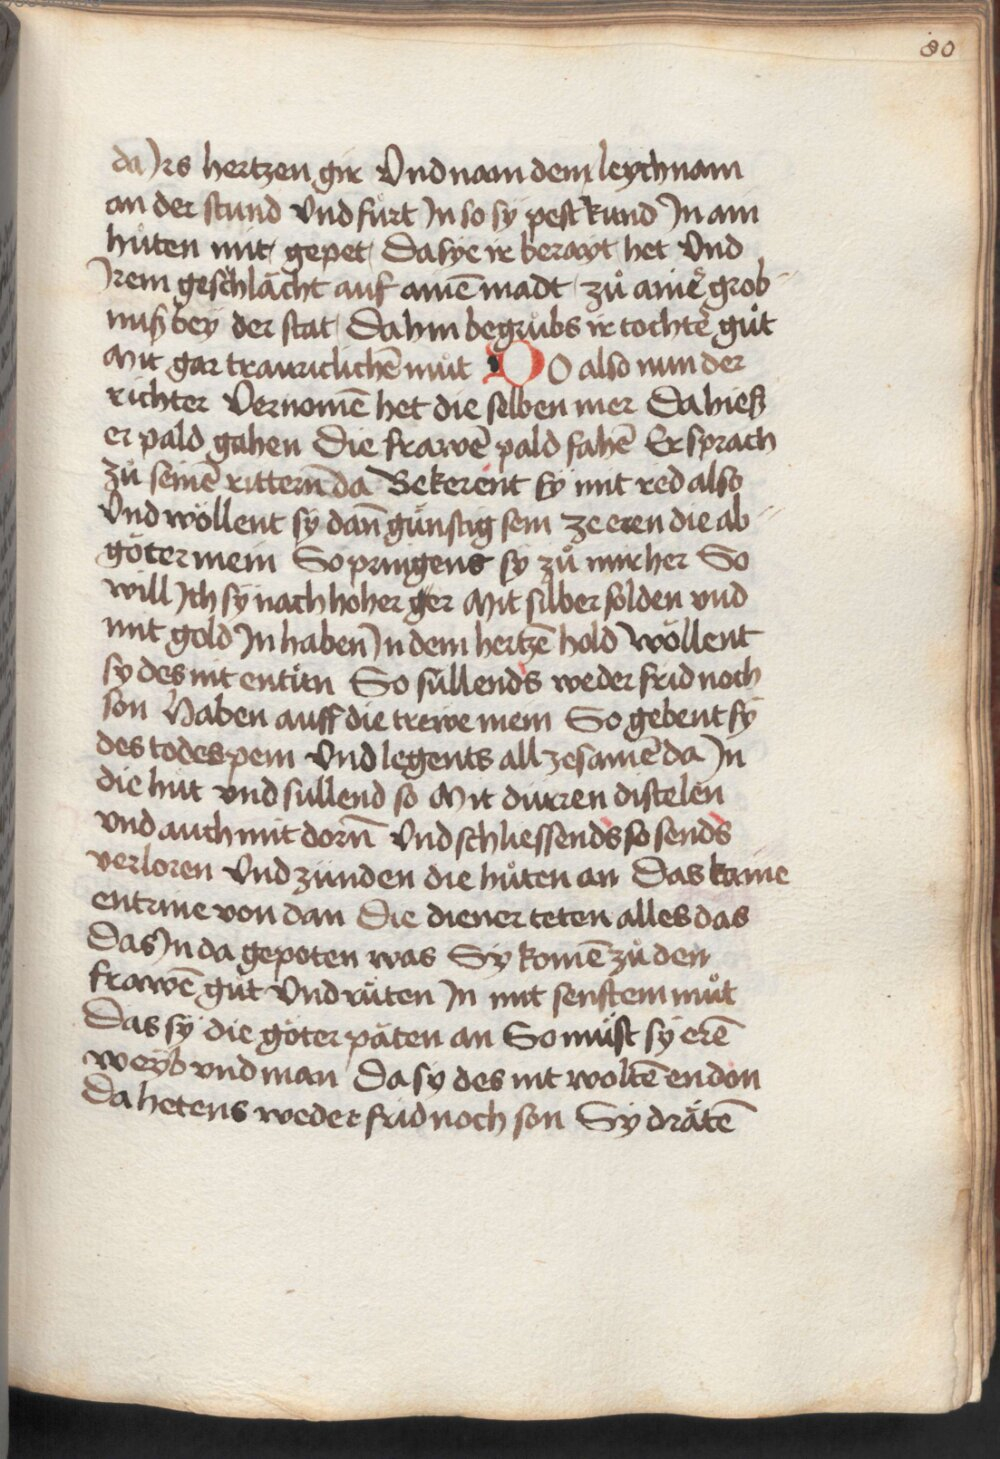 80
da Irs hertzen gir Vnd nam dem leychnam
an der stund Vnd fu̇rt In so sy pest kund In ain
hu̇ten mit gepet Da sye ir berayt het Vnd
Irem geschlächt auf ainē madt zů ainē grob
nuß bey der stat Dahin begrůbs ir tochtē gůt
Mit gar traurichlichē můt DO also nun der
richter Vernomē het die selben mer Da hieß
er pald gahen Die frawē pald fahē Er sprach
zů seinē ritterñ da Bekerent sy mit red also
Vnd wöllent sy dañ gu̇nstig sein ze eren die ab
göter mein So pringens sy zů mir her So
will Ich sy nach hoher ger Mit silber solden vnd
mit gold In haben In dem hertzē hold Wöllent
sy des nit entůn So sullends weder frid noch
son Haben auff die trewe mein So gebent sy
des todes pein Vnd legents all zesamē da In
die hüt vnd sullend so Mit durren distelen
vnd auch mit dorñ Vnd schliessends so sends
verloren Vnd zünden die hůten an Das kaine
entrine von dan Die diener teten alles das
Das In da gepoten was Sy komē zů den
frawē gůt Vnd ru̇ten In mit senftem můt
Das sy die göter päten an So müst sy erē
weyb vnd man Da sy des nit woltē endon
Da hetens weder frid noch son Sy drätē